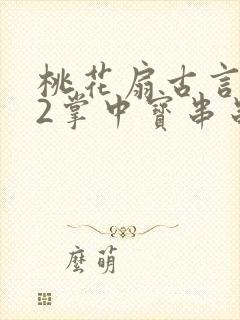 桃花扇古言
2掌中寳串
麼萌